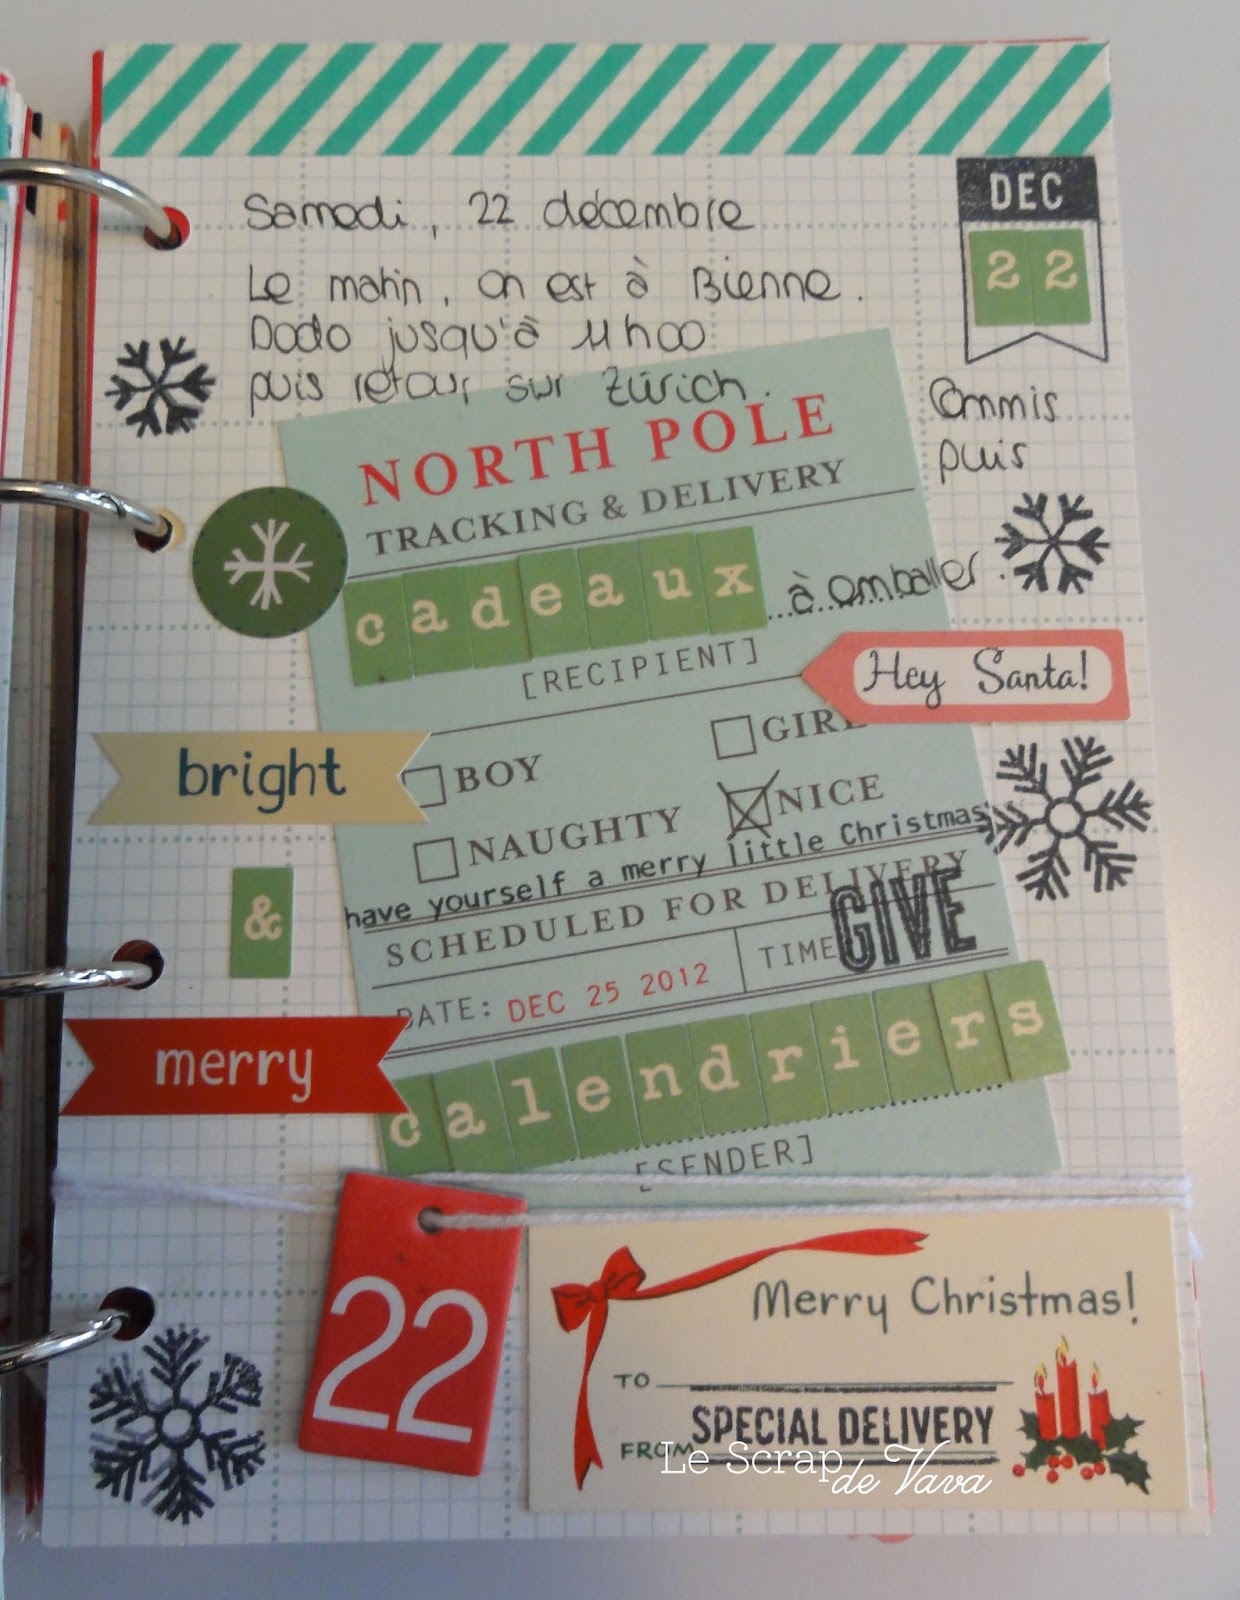 DEC
22
Samedi, 22 décembre
Le matin, on est à Bienne.
Dodo jusqu'à 11h00
puis retour sur Zürich.
Commis
puis
NORTH POLE
TRACKING & DELIVERY
cadeaux à emballer.
[RECIPIENT]
Hey Santa!
BOY GIRL
NAUGHTY NICE
bright
&
merry
have yourself a merry little Christmas
SCHEDULED FOR DELIVERY
GIVE
DATE: DEC 25 2012 TIME
calendriers
[SENDER]
22
Merry Christmas!
TO
SPECIAL DELIVERY
FROM
Le Scrap de Vava